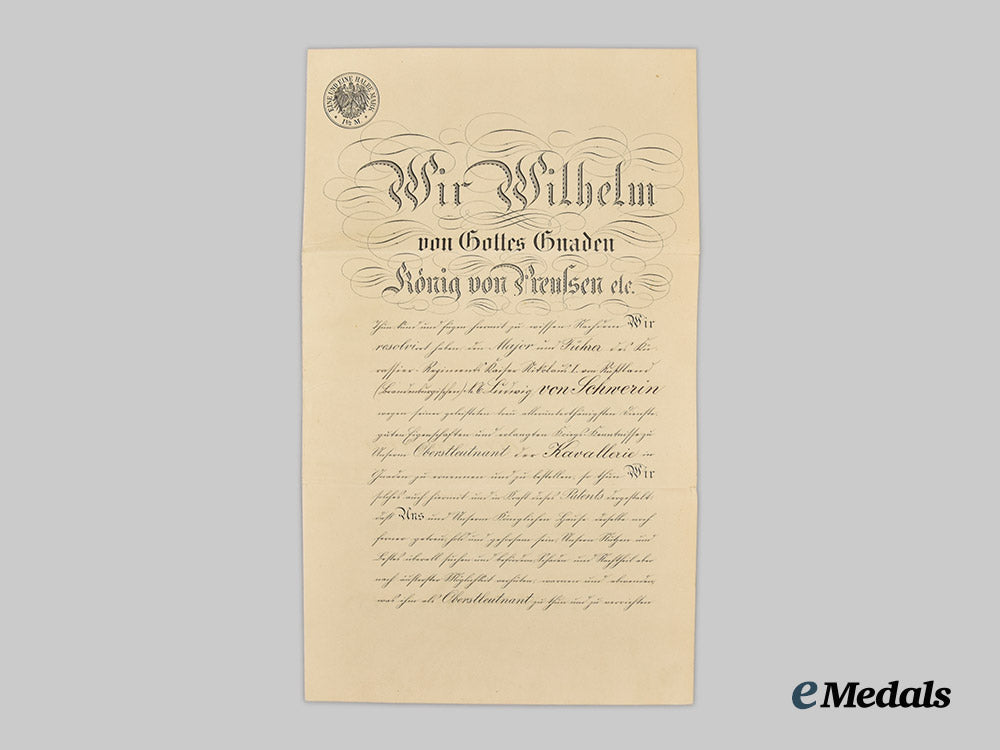 EINE UND EINE HALBE MARK
1½ M.
Wir Wilhelm
von Gottes Gnaden
König von Preußen etc.
Thun kund und fügen hiermit zu wissen. Nachdem Wir
resolvirt haben, den Major und Führer des Kü-
rassier-Regiments Kaiser Nikolaus I. von Rußland
(Brandenburgischen) № 6. Ludwig von Schwerin
wegen seiner geleisteten treu allerunterthänigsten Dienste
guten Eigenschaften und erlangten Kriegs-Kenntnisse zu
Unserm Oberstleutnant der Kavallerie in
Gnaden zu ernennen und zu bestellen, so thun Wir
solches auch hiermit und in Kraft dieses Patents dergestalt:
daß Uns und Unserm Königlichen Hause derselbe noch
ferner getreu, hold und gehorsam sein, Unsern Nutzen und
Bestes überall suchen und befördern, Schaden und Nachtheil aber
nach äußerster Möglichkeit verhüten, warnen und abwenden,
was ihm als Oberstleutnant zu thun und zu verrichten
eMedals